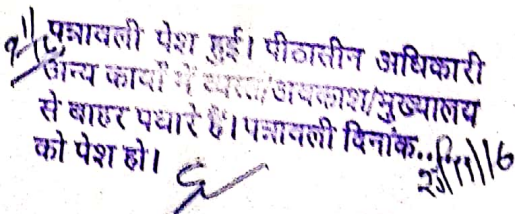 पत्रावली पेश हुई। पीठासीन अधिकारी
अन्य कार्यों में व्यस्त/अवकाश/मुख्यालय
से बाहर पधारे हैं। पत्रावली दिनांक..
को पेश हो।